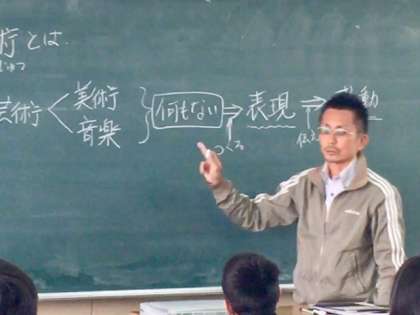 術とは
じゅつ
芸術<美術
音楽
何もない⇒表現⇒
つくる
伝え
動
adidas